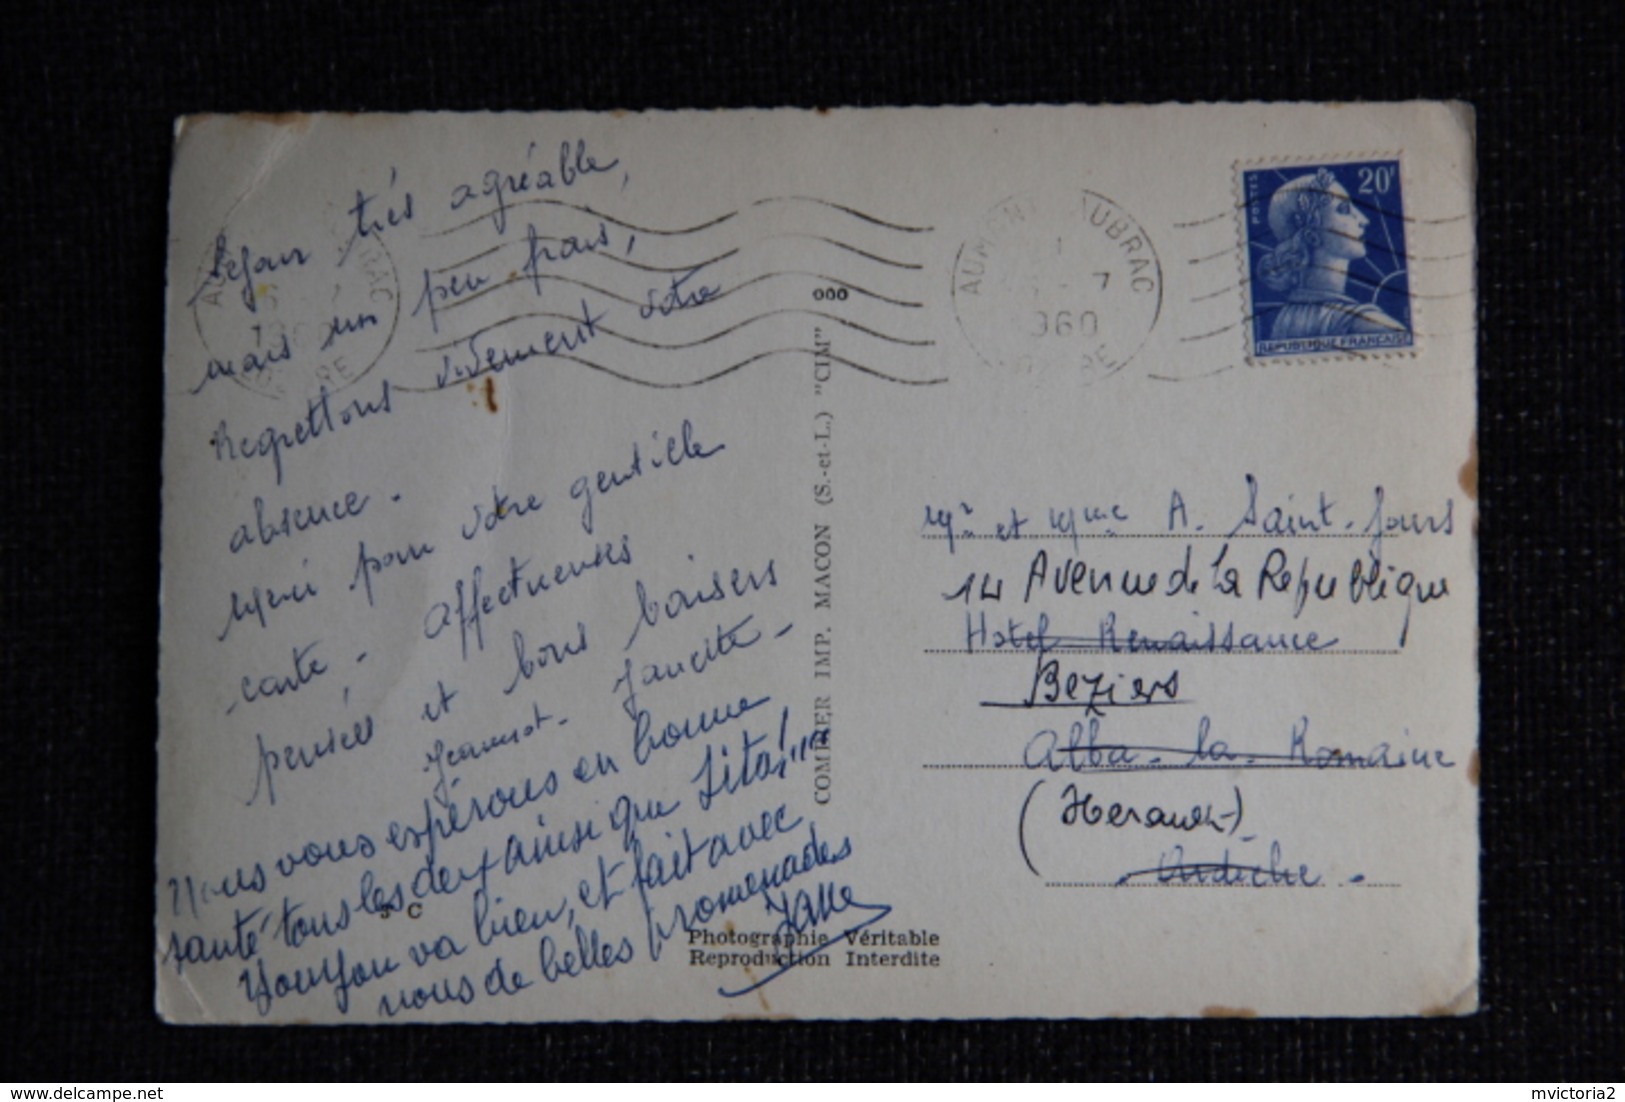 Séjour très agréable,
mais un peu frais,
Regrettons vivement votre
absence.
Merci pour votre gentille
carte. Affectueuses
pensées et bons baisers
Jeannot. Jancete.
Nous vous espérons en bonne
santé tous les deux ainsi que Zita!...
Youyou va bien, et fait avec
nous de belles promenades
J C
Photographie Véritable
Reproduction Interdite
COMBIER IMP. MACON (S.-et-L.) "CIM"
AUMONT AUBRAC
7
1960
LOZERE
POSTES
20F
REPUBLIQUE FRANÇAISE
Mr et Mme A. Saint-Jours
14 Avenue de la Republique
Hotel Renaissance
Beziers
Alba-la-Romaine
(Herault)
Ardèche.
mvictoria2